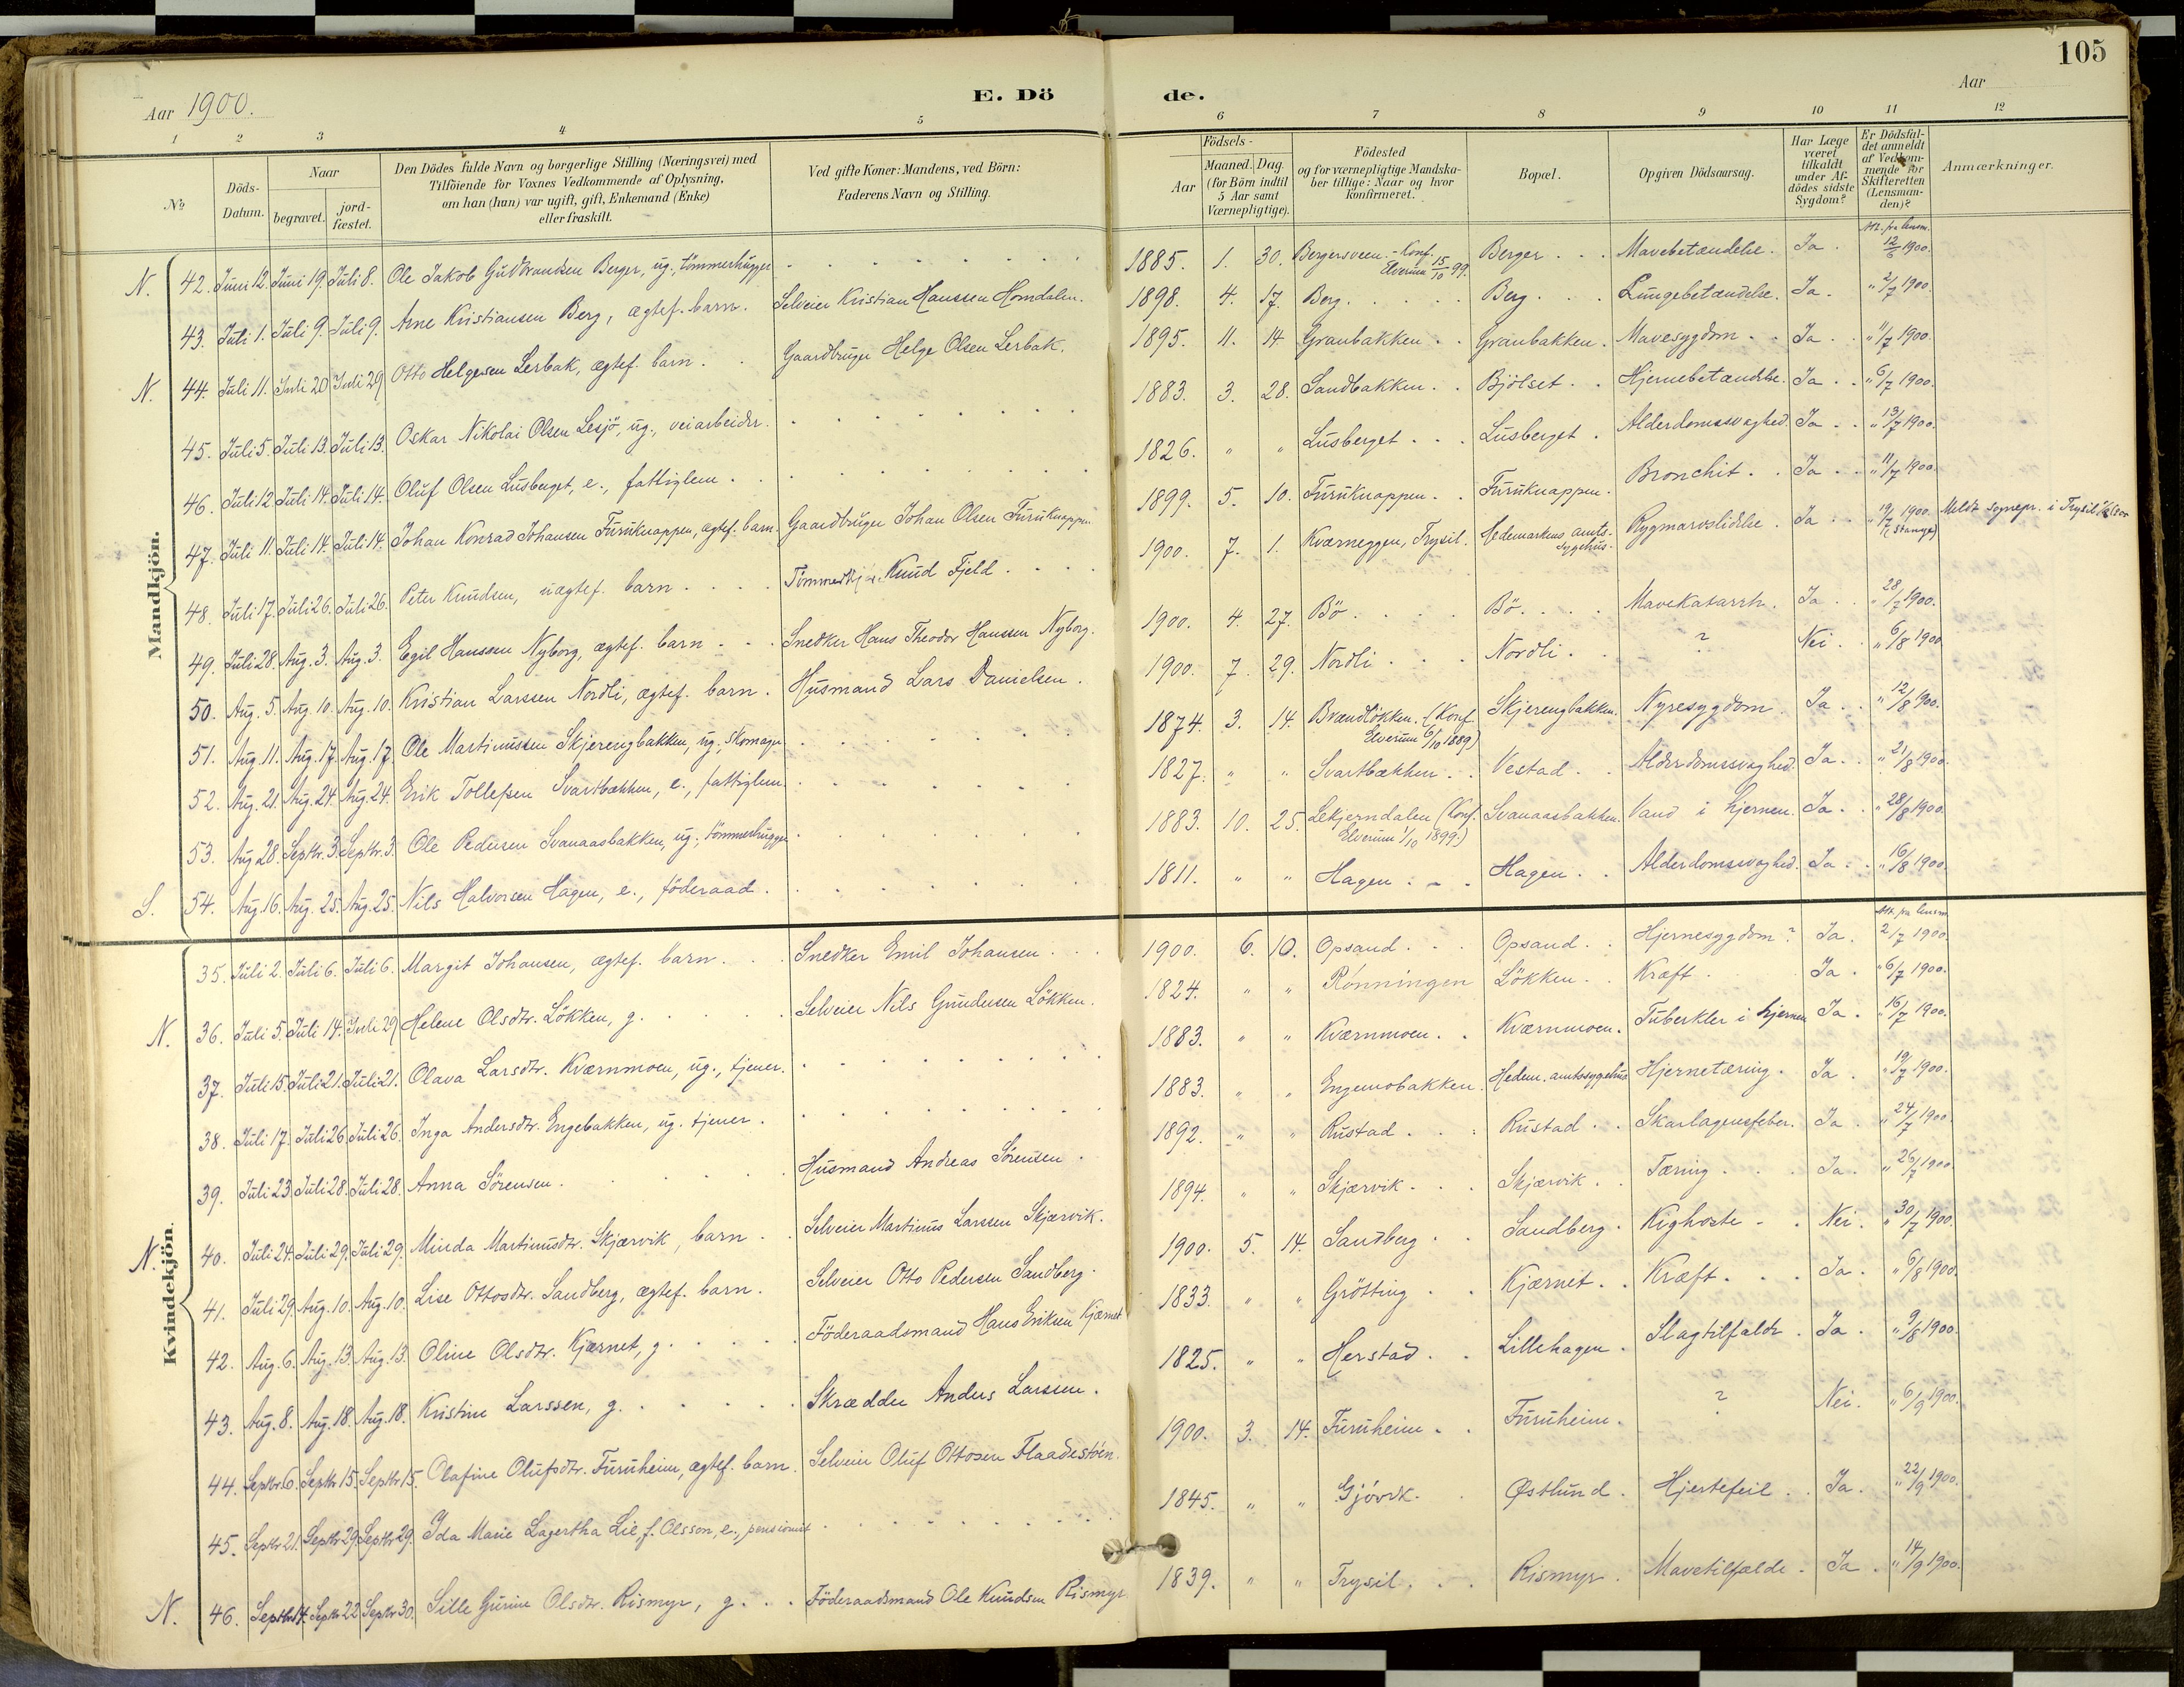 105
Aar 1900. E. Dö de. Aar
1 2 3 4 5 6 7 8 9 10 11 12
No
Döds-Datum.
Naar
begravet.
jord-fæstet.
Den Dödes fulde Navn og borgerlige Stilling (Næringsvei) med
Tilföiende for Voxnes Vedkommende af Oplysning,
om han (hun) var ugift, gift, Enkemand (Enke)
eller fraskilt.
Ved gifte Koner: Mandens, ved Börn:
Faderens Navn og Stilling.
Födsels-
Aar
Maaned. Dag.
(for Börn indtil
5 Aar samt
Værnepligtige).
Födested
og for værnepligtige Mandska-
ber tillige: Naar og hvor
konfirmeret.
Bopæl.
Opgiven Dödsaarsag.
Har Læge
været
tilkaldt
under Af-
dödes sidste
Sygdom?
Er Dödsfal-
det anmeldt
af Vedkom-
mende for
Skifteretten
(Lensman-
den)?
Anmærkninger.
Mandkjön.
N. 42. Juni 12. Juni 19. Juli 8. Ole Jakob Gudbrandsen Berger, ug., tömmerhugger 1885. 1. 30. Bergersveen.- Konf. Elverum 15/10 99. Berger Mavebetændelse. Ja. Att. fra lensm. 12/6 1900.
43. Juli 1. Juli 9. Juli 9. Arne Kristiansen Berg, ægtef. barn. Selveier Kristian Hanssen Homdalen. 1898. 4. 17. Berg. Berg Lungebetændelse. Ja. " 2/7 1900.
N. 44. Juli 11. Juli 20 Juli 29 Otto Helgesen Lerbak, ægtef. barn. Gaardbruger Helge Olsen Lerbak. 1895. 11. 14 Granbakken Granbakken. Mavesygdom Ja " 11/7 1900.
45. Juli 5. Juli 13. Juli 13. Oskar Nikolai Olsen Lesjö, ug., veiarbeider. 1883. 3. 28. Sandbakken Bjölset Hjernebetændelse. Ja. " 6/7 1900.
46. Juli 12 Juli 14. Juli 14. Oluf Olsen Lusberget, e., fattiglem 1826. " " Lusberget Lusberget. Alderdomssvaghed. Ja " 13/7 1900.
47. Juli 11. Juli 14. Juli 14. Johan Konrad Johansen Furuknappen, ægtef. barn. Gaardbruger Johan Olsen Furuknappen 1899. 5. 10. Furuknappen Furuknappen. Bronchit Ja " 11/7 1900.
48. Juli 17. Juli 26. Juli 26. Peter Knudsen, uægtef. barn Knud Fjeld 1900. 7. 1. Kværneggen, Trysil. Hedemarkens amts-sygehus. Rygmarvslidelse. Ja " 19/7 1900. (Stange) Meldt sognepr. i Trysil
49. Juli 28. Aug. 3. Aug. 3. Egil Hanssen Nyborg, ægtef. barn Snedker Hans Theodor Hanssen Nyborg. 1900. 4. 27. Bö Bö Mavekatarrh. Ja. " 28/7 1900.
50. Aug. 5. Aug. 10. Aug. 10. Kristian Larssen Nordli, ægtef. barn. Husmand Lars Danielsen. 1900. 7. 29. Nordli Nordli ? Nei. " 6/8 1900
51. Aug. 11. Aug. 17. Aug. 17. Ole Martinussen Skjerengbakken, ug., skomager 1874. 3. 14. Brændlökken. (Konf. Elverum 6/10 1889) Skjerengbakken. Nyresygdom Ja " 12/8 1900.
52. Aug. 21. Aug. 24. Aug. 24. Erik Tollefsen Svartbækken, e., fattiglem. 1827. " " Svartbækken Vestad Alderdomssvaghed. Ja " 21/8 1900.
53. Aug 28. Septbr. 3. Septbr. 3. Ole Pedersen Svanaasbakken, ug., tömmerhugger 1883. 10. 25. Lekjerndalen (Konf. Elverum 1/10 1899.) Svanaasbakken. Vand i hjernen. Ja " 28/8 1900.
S. 54. Aug. 16. Aug. 25. Aug. 25. Nils Halvorsen Hagen, e., föderaad 1811. " " Hagen Hagen Alderdomssvaghed. Ja " 16/8 1900.
Kvindekjön.
35. Juli 2. Juli 6. Juli 6. Margit Johansen, ægtef. barn. Snedker Emil Johansen 1900. 6. 10. Opsand Opsand Hjernesygdom? Ja. Att. fra lensm. 2/7 1900.
N. 36. Juli 5. Juli 14. Juli 29 Helene Olsdtr. Lökken, g. Selveier Nils Gundersen Lökken. 1824. " " Rönningen Lökken Kræft. Ja. " 6/7 1900.
37. Juli 15. Juli 21. Juli 21. Olava Larsdtr. Kværnmoen, ug., tjener. 1883. " " Kværnmoen Kværnmoen. Tuberkler i hjernen Ja. " 16/7 1900.
38. Juli 17. Juli 26 Juli 26. Inga Andersdtr. Engebakken, ug. tjener. 1883. " " Engemobakken. Hedem. amtssygehus Hjernetæring. Ja " 19/7 1900.
39. Juli 23. Juli 28. Juli 28. Anna Sörensen. Husmand Andreas Sörensen. 1892. " " Rustad Rustad Skarlagensfeber. Ja " 24/7 1900.
N. 40. Juli 24. Juli 29. Juli 29. Minda Martinusdtr. Skjærvik, barn Selveier Martinus Larssen Skjærvik. 1894. " " Skjærvik Skjærvik Tæring Ja. " 26/7 1900.
41. Juli 29. Aug. 10. Aug. 10. Lise Ottosdtr. Sandberg, ægtef. barn. Selveier Otto Pedersen Sandberg. 1900. 5. 14. Sandberg Sandberg. Kighoste Nei. " 30/7 1900.
42. Aug. 6. Aug. 13. Aug. 13. Oline Olsdtr. Kjærnet, g Föderaadsmand Hans Eriksen Kjærnet 1833. " " Grötting Kjærnet Kræft Ja. " 6/8 1900.
43. Aug. 8. Aug. 18. Aug. 18. Kristine Larssen, g. Skrædder Anders Larssen. 1825. " " Herstad Lillehagen. Slagtilfælde. Ja. " 9/8 1900.
44. Septbr. 6. Septbr 15. Septbr 15. Olafine Olufsdtr. Furuheim, ægtef. barn. Selveier Oluf Ottosen Flaadestöen. 1900. 3. 14. Furuheim Furuheim. ? Nei. " 6/9 1900.
45. Septbr 21. Septbr 29. Septbr 29. Ida Marie Lagertha Lie, f. Olsson, e., pensionist 1845. " " Gjövik Østlund. Hjertefeil Ja. " 22/9 1900.
N. 46. Septbr 14. Septbr 22 Septbr 30. Sille Gurine Olsdtr. Rismyr, g. Föderaadsmand Ole Knudsen Rismyr 1839. " " Trysil Rismyr. Mavetilfælde. Ja. " 14/9 1900.